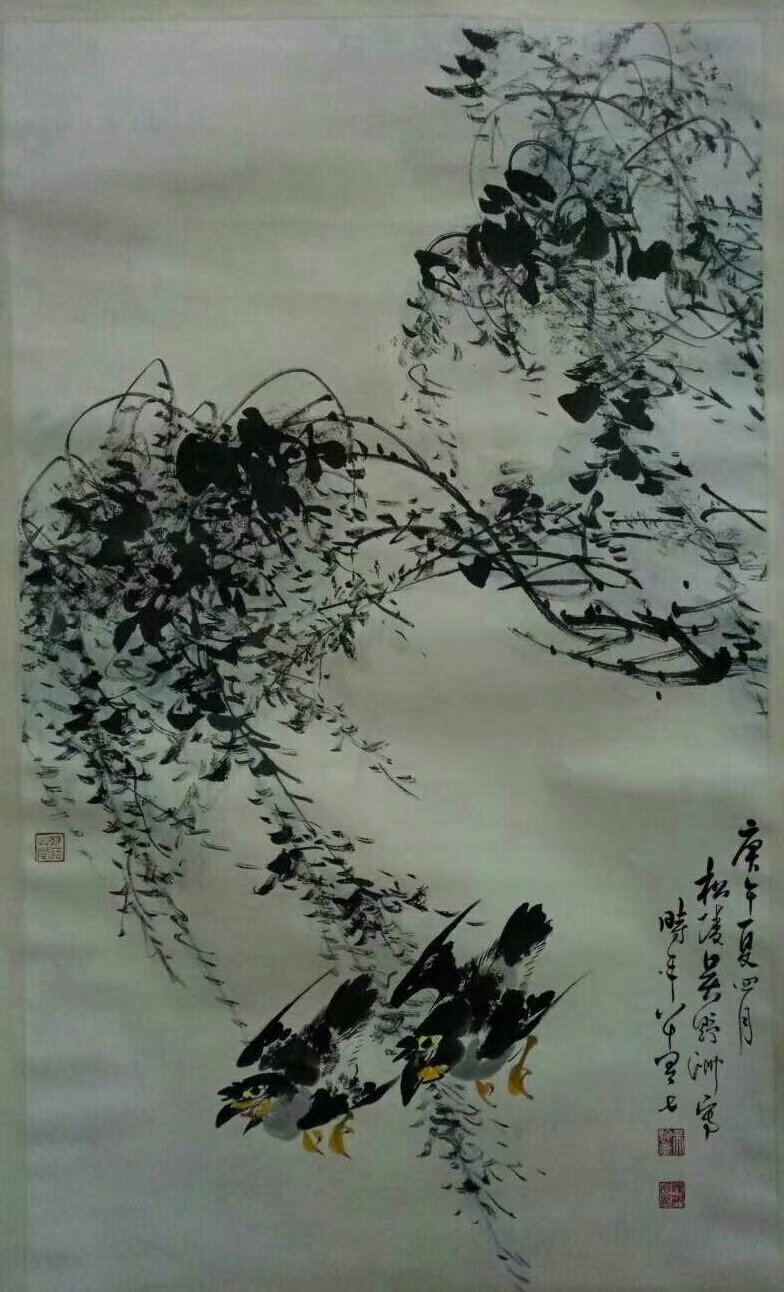 庚午夏四月
松陵吳野洲寫
時年八十七